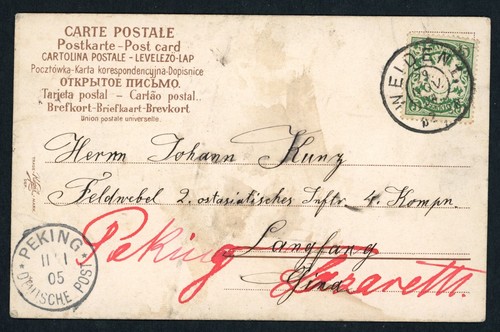 CARTE POSTALE
Postkarte - Post card
CARTOLINA POSTALE - LEVELEZO-LAP
Pocztówka-Karta korespondencyjna-Dopisnice
ОТКРЫТОЕ ПИСЬМО.
Tarjeta postal - Cartão postal..
Brefkort-Briefkaart-Brevkort
Union postale universelle.
WEIDEN 1
Herrn Johann Kunz
Feldwebel 2. ostasiatisches Inftr 4. Kompn.
Peking Langfang
China Lazareth.
PEKING
11 1
05
DEUTSCHE POST